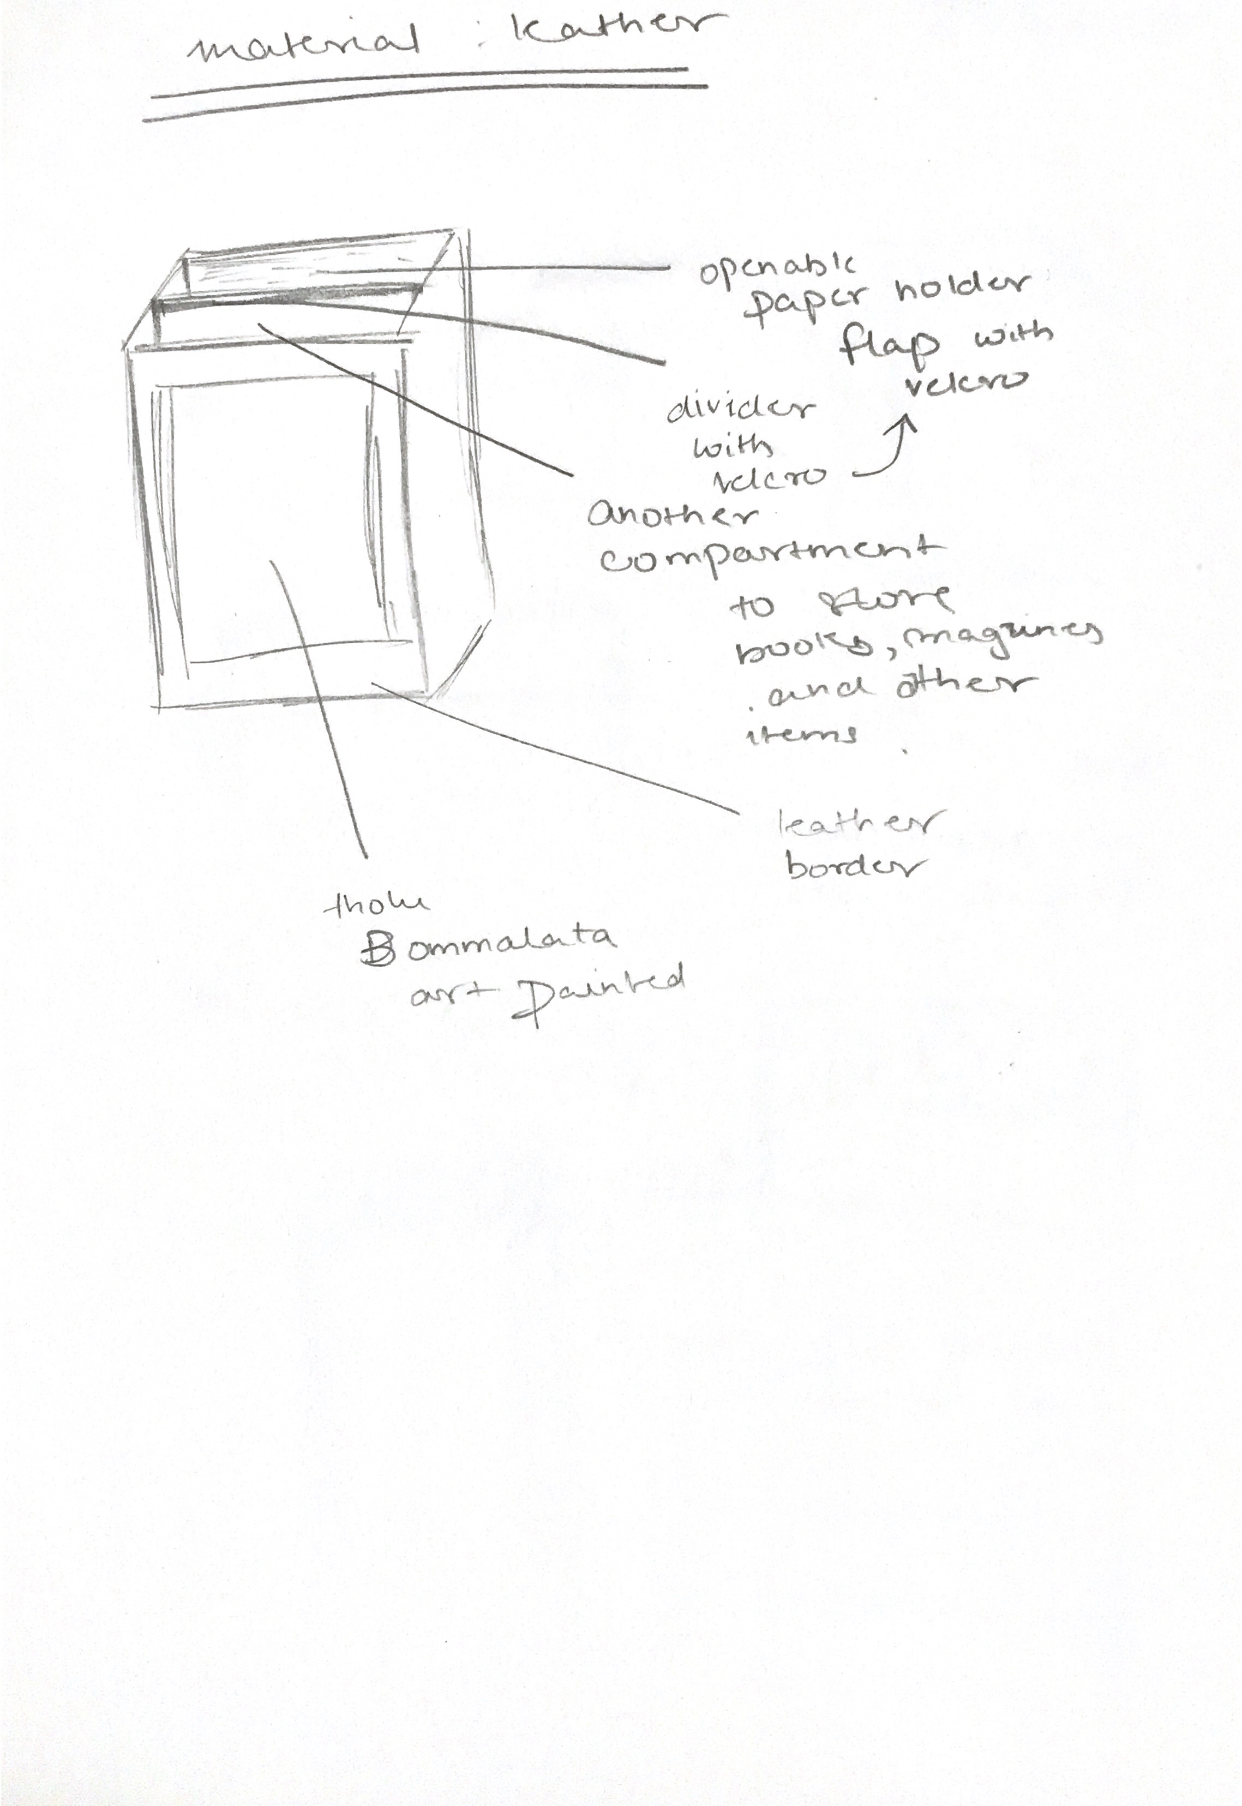 material : leather
openable
paper holder
flap with
velcro
divider
with
velcro
another
compartment
to store
books, magzines
and other
items
leather
border
tholu
Bommalata
art painted